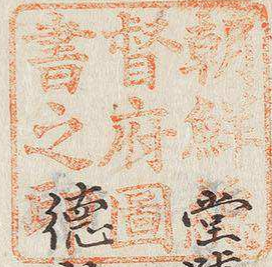 朝鮮
督府圖
書之
堂
德